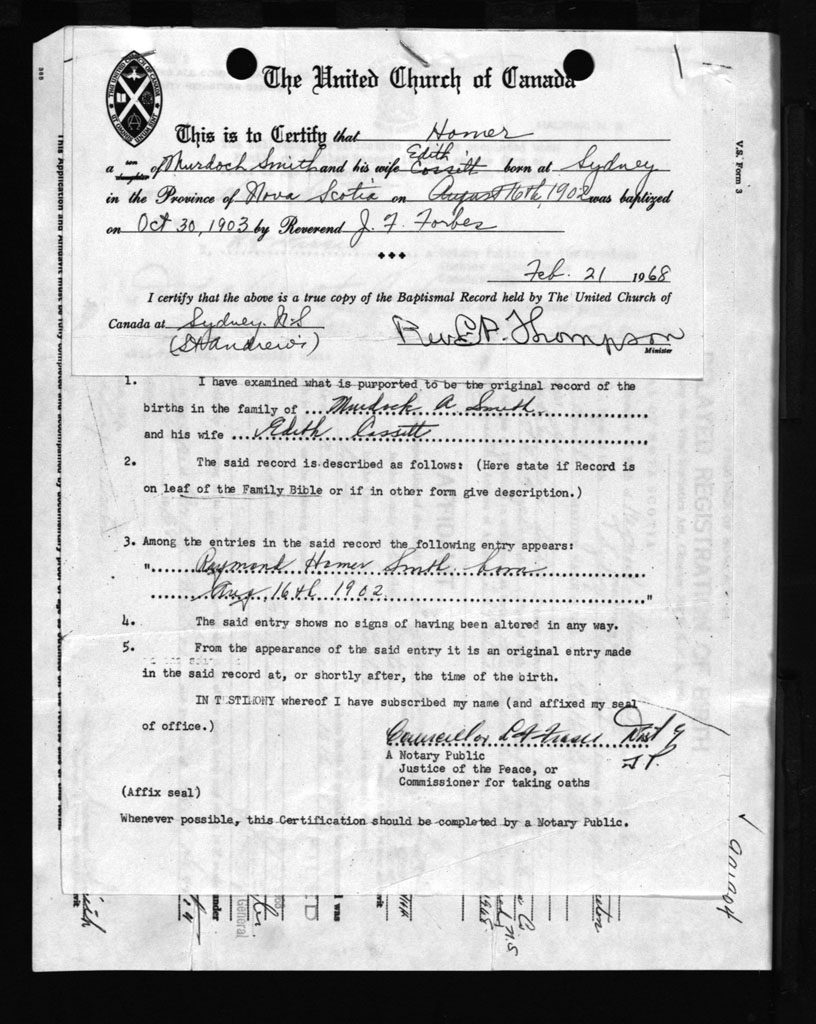 The United Church of Canada
This is to Certify that Homer
a son daughter of Murdoch Smith and his wife Edith Cossitt born at Sydney
in the Province of Nova Scotia on August 16th, 1902 was baptized
on Oct 30, 1903 by Reverend J. F. Forbes
Feb. 21 1968
I certify that the above is a true copy of the Baptismal Record held by The United Church of
Canada at Sydney. N.S
(St Andrew's) Rev E. P. Thompson
Minister
1. I have examined what is purported to be the original record of the
births in the family of ... Murdock A. Smith
and his wife .... Edith Cossett
2. The said record is described as follows: (Here state if Record is
on leaf of the Family Bible or if in other form give description.)
3. Among the entries in the said record the following entry appears:
"..... Raymond Homer Smith born
..... Aug 16th 1902 "
4. The said entry shows no signs of having been altered in any way.
5. From the appearance of the said entry it is an original entry made
in the said record at, or shortly after, the time of the birth.
IN TESTIMONY whereof I have subscribed my name (and affixed my seal
of office.)
Councillor Dist 9
J P.
A Notary Public
Justice of the Peace, or
Commissioner for taking oaths
(Affix seal)
Whenever possible, this Certification should be completed by a Notary Public.
V.S. Form 3
901204